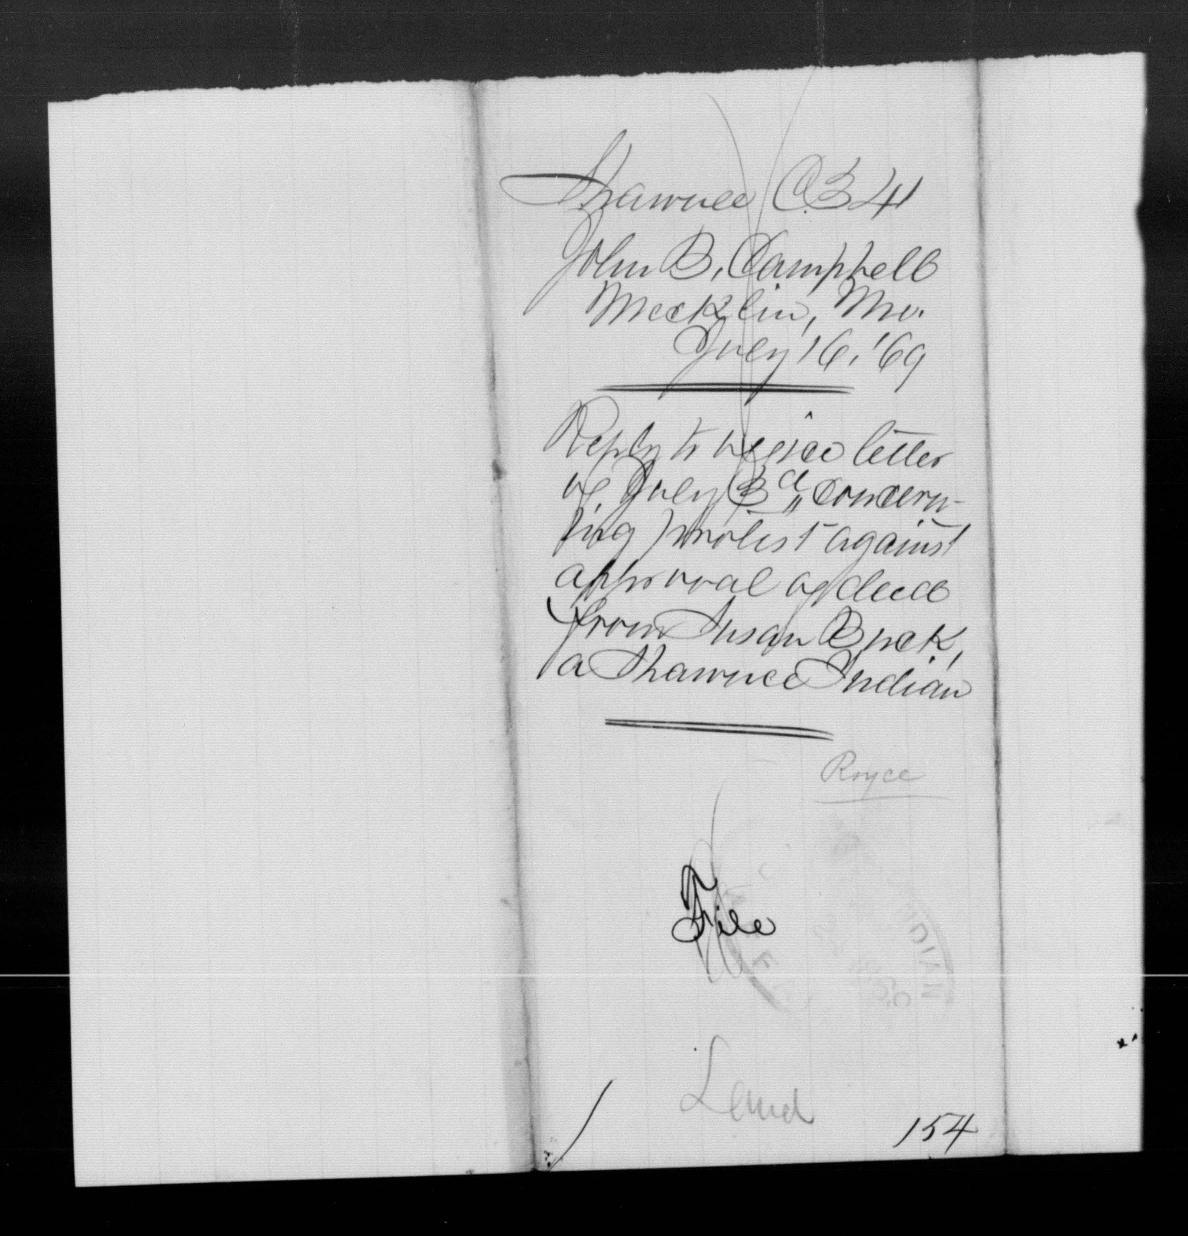 Shawnee C. 341
John B. Campbell
Mecklin, Mo.
July 16, '69
Reply to office letter
of July 3d, concern-
ing protest against
approval of deed
from Susan Buck,
a Shawnee Indian
Royce
File
INDIAN
Land
154